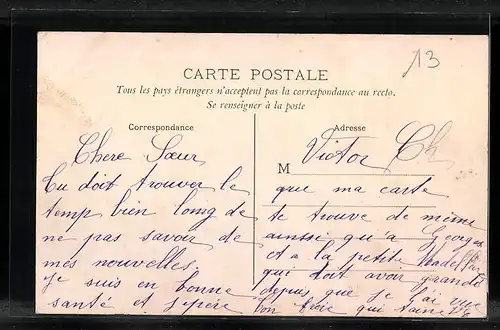 13
CARTE POSTALE
Tous les pays étrangers n'acceptent pas la correspondance au recto.
Se renseigner à la poste
Correspondance
Chere Sœur
tu doit trouver le
temp bien loing de
ne pas savoir de
mes nouvelles,
je suis en bonne
santé et j'espère
Adresse
Victor Ch
M
que ma carte
te trouve de même
ainssi qu'a Georges
et a la petite
qui doit avoir grandit
depuis que je l'ai vue
ton frère qui t'aime